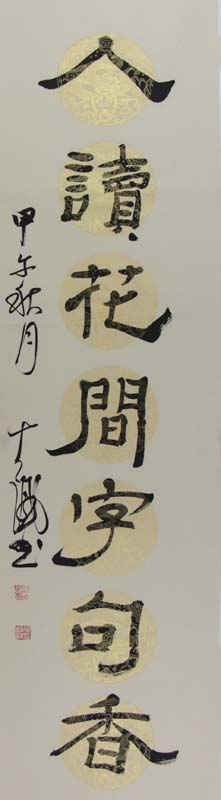 人讀花間字句香
甲午秋月
書